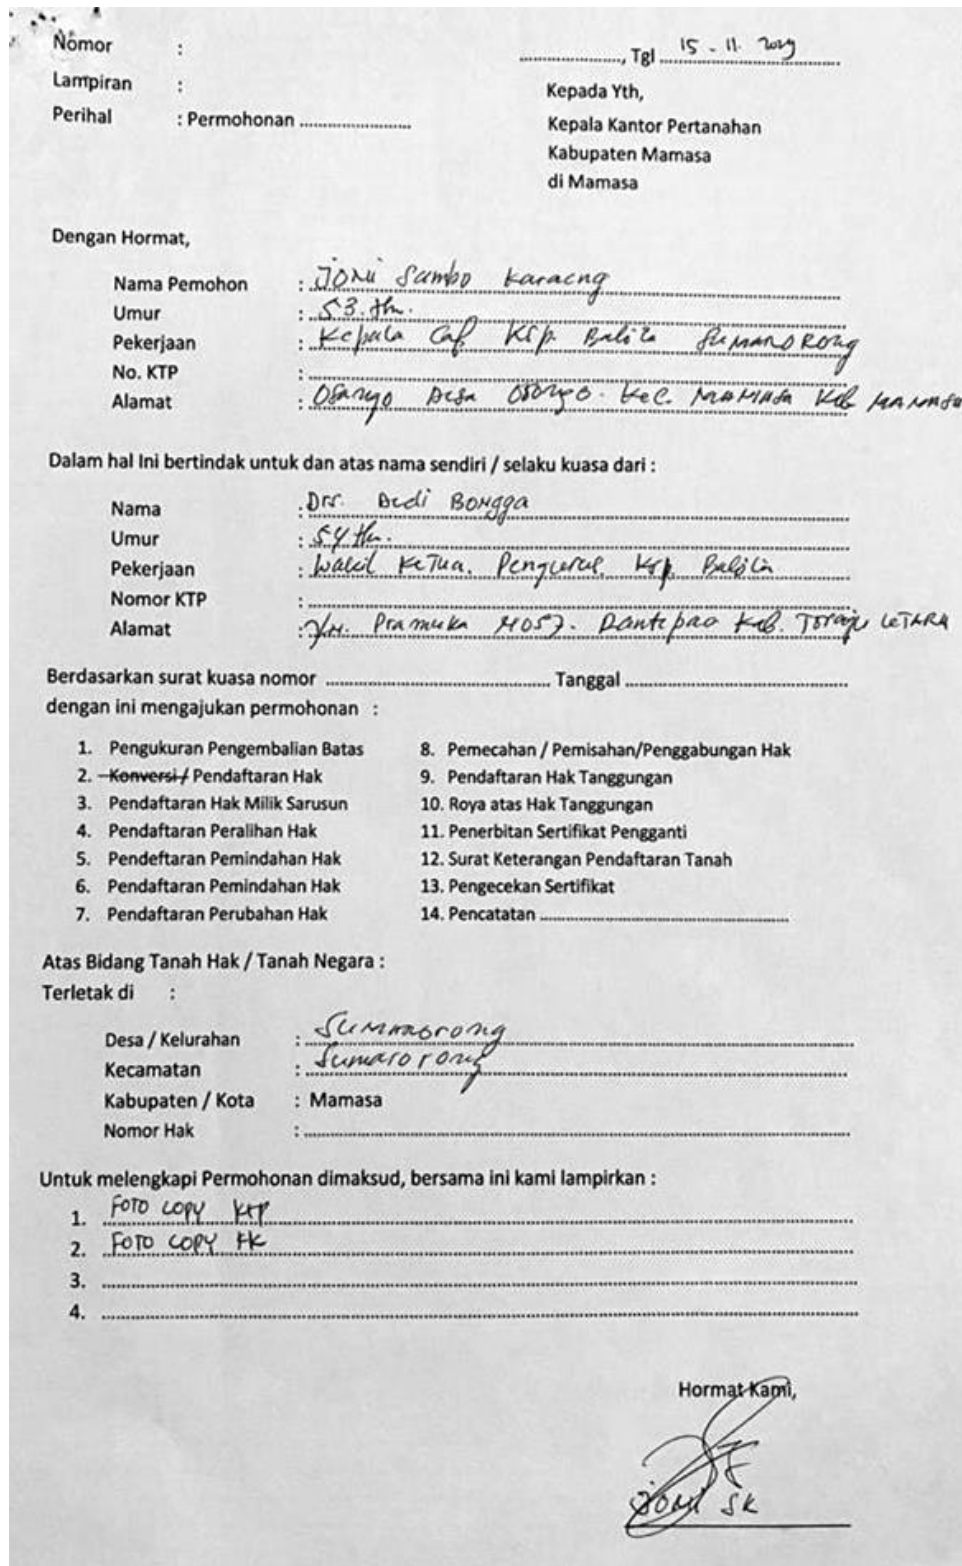 Nomor :
..................., Tgl 15 - 11. 2019
Lampiran :
Kepada Yth,
Perihal : Permohonan .......................
Kepala Kantor Pertanahan
Kabupaten Mamasa
di Mamasa
Dengan Hormat,
Nama Pemohon : JONI Sambo Karaeng
Umur : 53. thn.
Pekerjaan : Kepala Cab Ksp. Balo'ta SUMARORong
No. KTP :
Alamat : Osango Desa Osango. Kec. MAMASA Kab MAMASA
Dalam hal Ini bertindak untuk dan atas nama sendiri / selaku kuasa dari :
Nama : Drs. Dedi BONgga
Umur : 54 thn.
Pekerjaan : Wakil KeTua. Pengurus Ksp. Balo'ta
Nomor KTP :
Alamat : Jln. Pramuka No57. Rantepao Kab. Toraja UTARA
Berdasarkan surat kuasa nomor .......................................... Tanggal ..........................................
dengan ini mengajukan permohonan :
1. Pengukuran Pengembalian Batas
2. Konversi / Pendaftaran Hak
3. Pendaftaran Hak Milik Sarusun
4. Pendaftaran Peralihan Hak
5. Pendeftaran Pemindahan Hak
6. Pendaftaran Pemindahan Hak
7. Pendaftaran Perubahan Hak
8. Pemecahan / Pemisahan/Penggabungan Hak
9. Pendaftaran Hak Tanggungan
10. Roya atas Hak Tanggungan
11. Penerbitan Sertifikat Pengganti
12. Surat Keterangan Pendaftaran Tanah
13. Pengecekan Sertifikat
14. Pencatatan ..........................................
Atas Bidang Tanah Hak / Tanah Negara :
Terletak di :
Desa / Kelurahan : Sumarorong
Kecamatan : Sumarorong
Kabupaten / Kota : Mamasa
Nomor Hak :
Untuk melengkapi Permohonan dimaksud, bersama ini kami lampirkan :
1. FOTO COPY KTP
2. FOTO COPY KK
3.
4.
Hormat Kami,
JONI SK